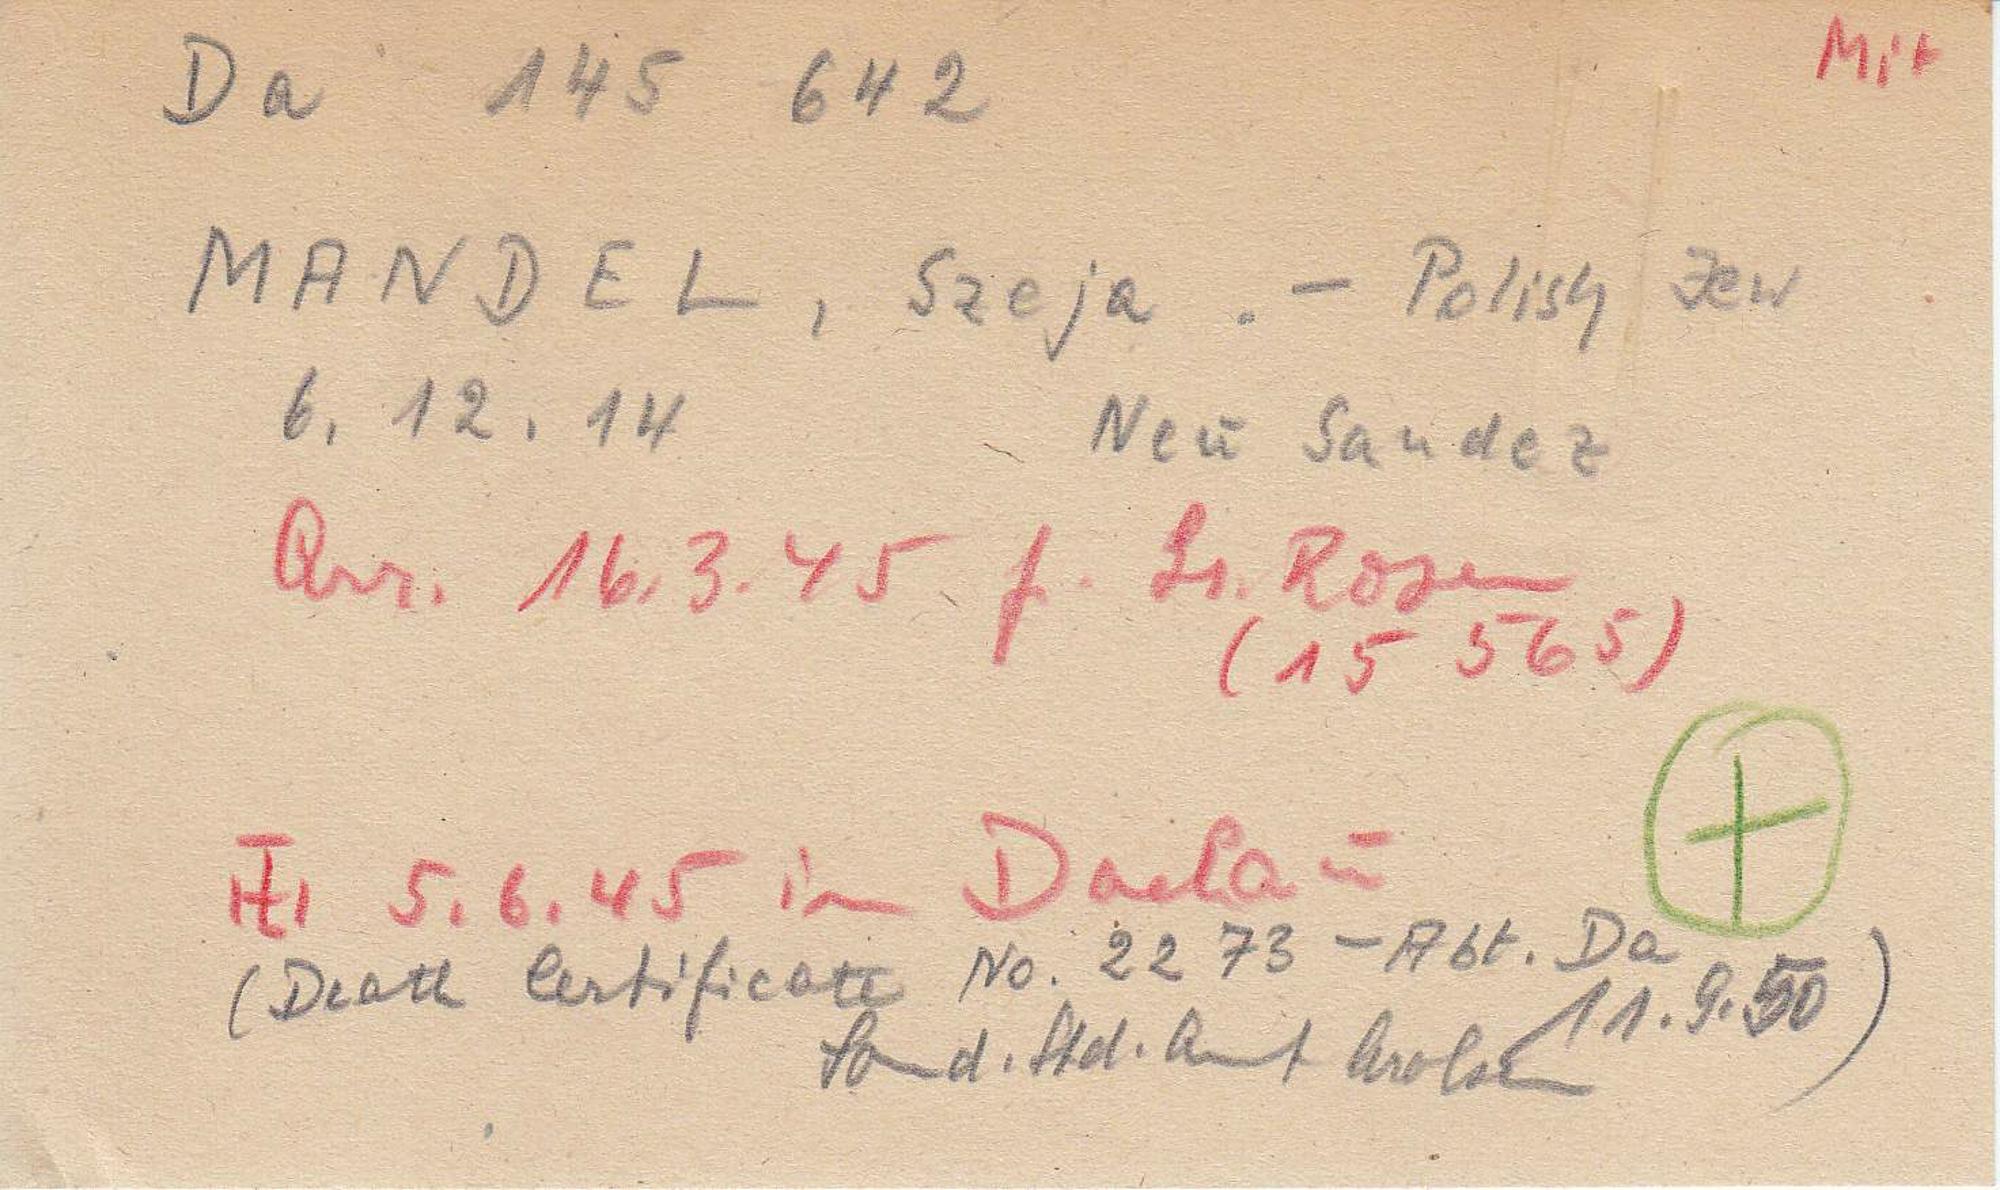 Da 145 642
Mit
MANDEL, Szeja. - Polish Jew
6.12.14 Neu Sandez
Arr. 16.3.45 f. Gr. Rosen
(15 565)
5.6.45 in Dachau
(Death Certificate No. 2273 - Abt. Da
11.9.50)
Sond. Std. Amt Arolsen